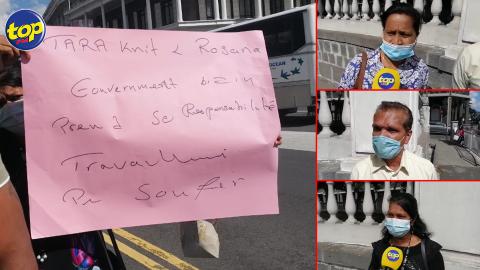 top
FM
TARA Knit & Rosana
Government bizin
Prend Se Responsabilité
Pe Soufèr
OCEAN
top
top
top